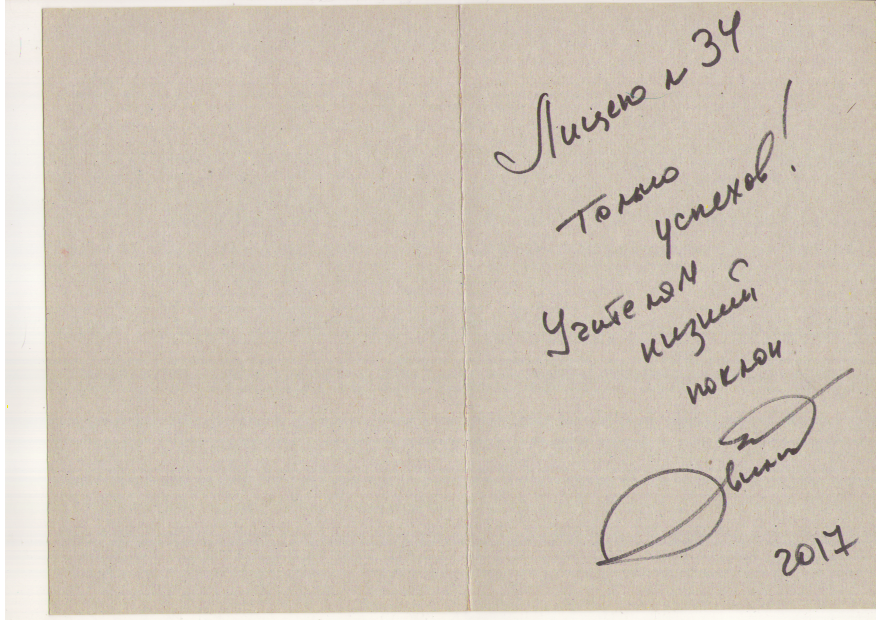 Лицею N 34
Только
успехов!
Учителям
низкий
поклон
2017